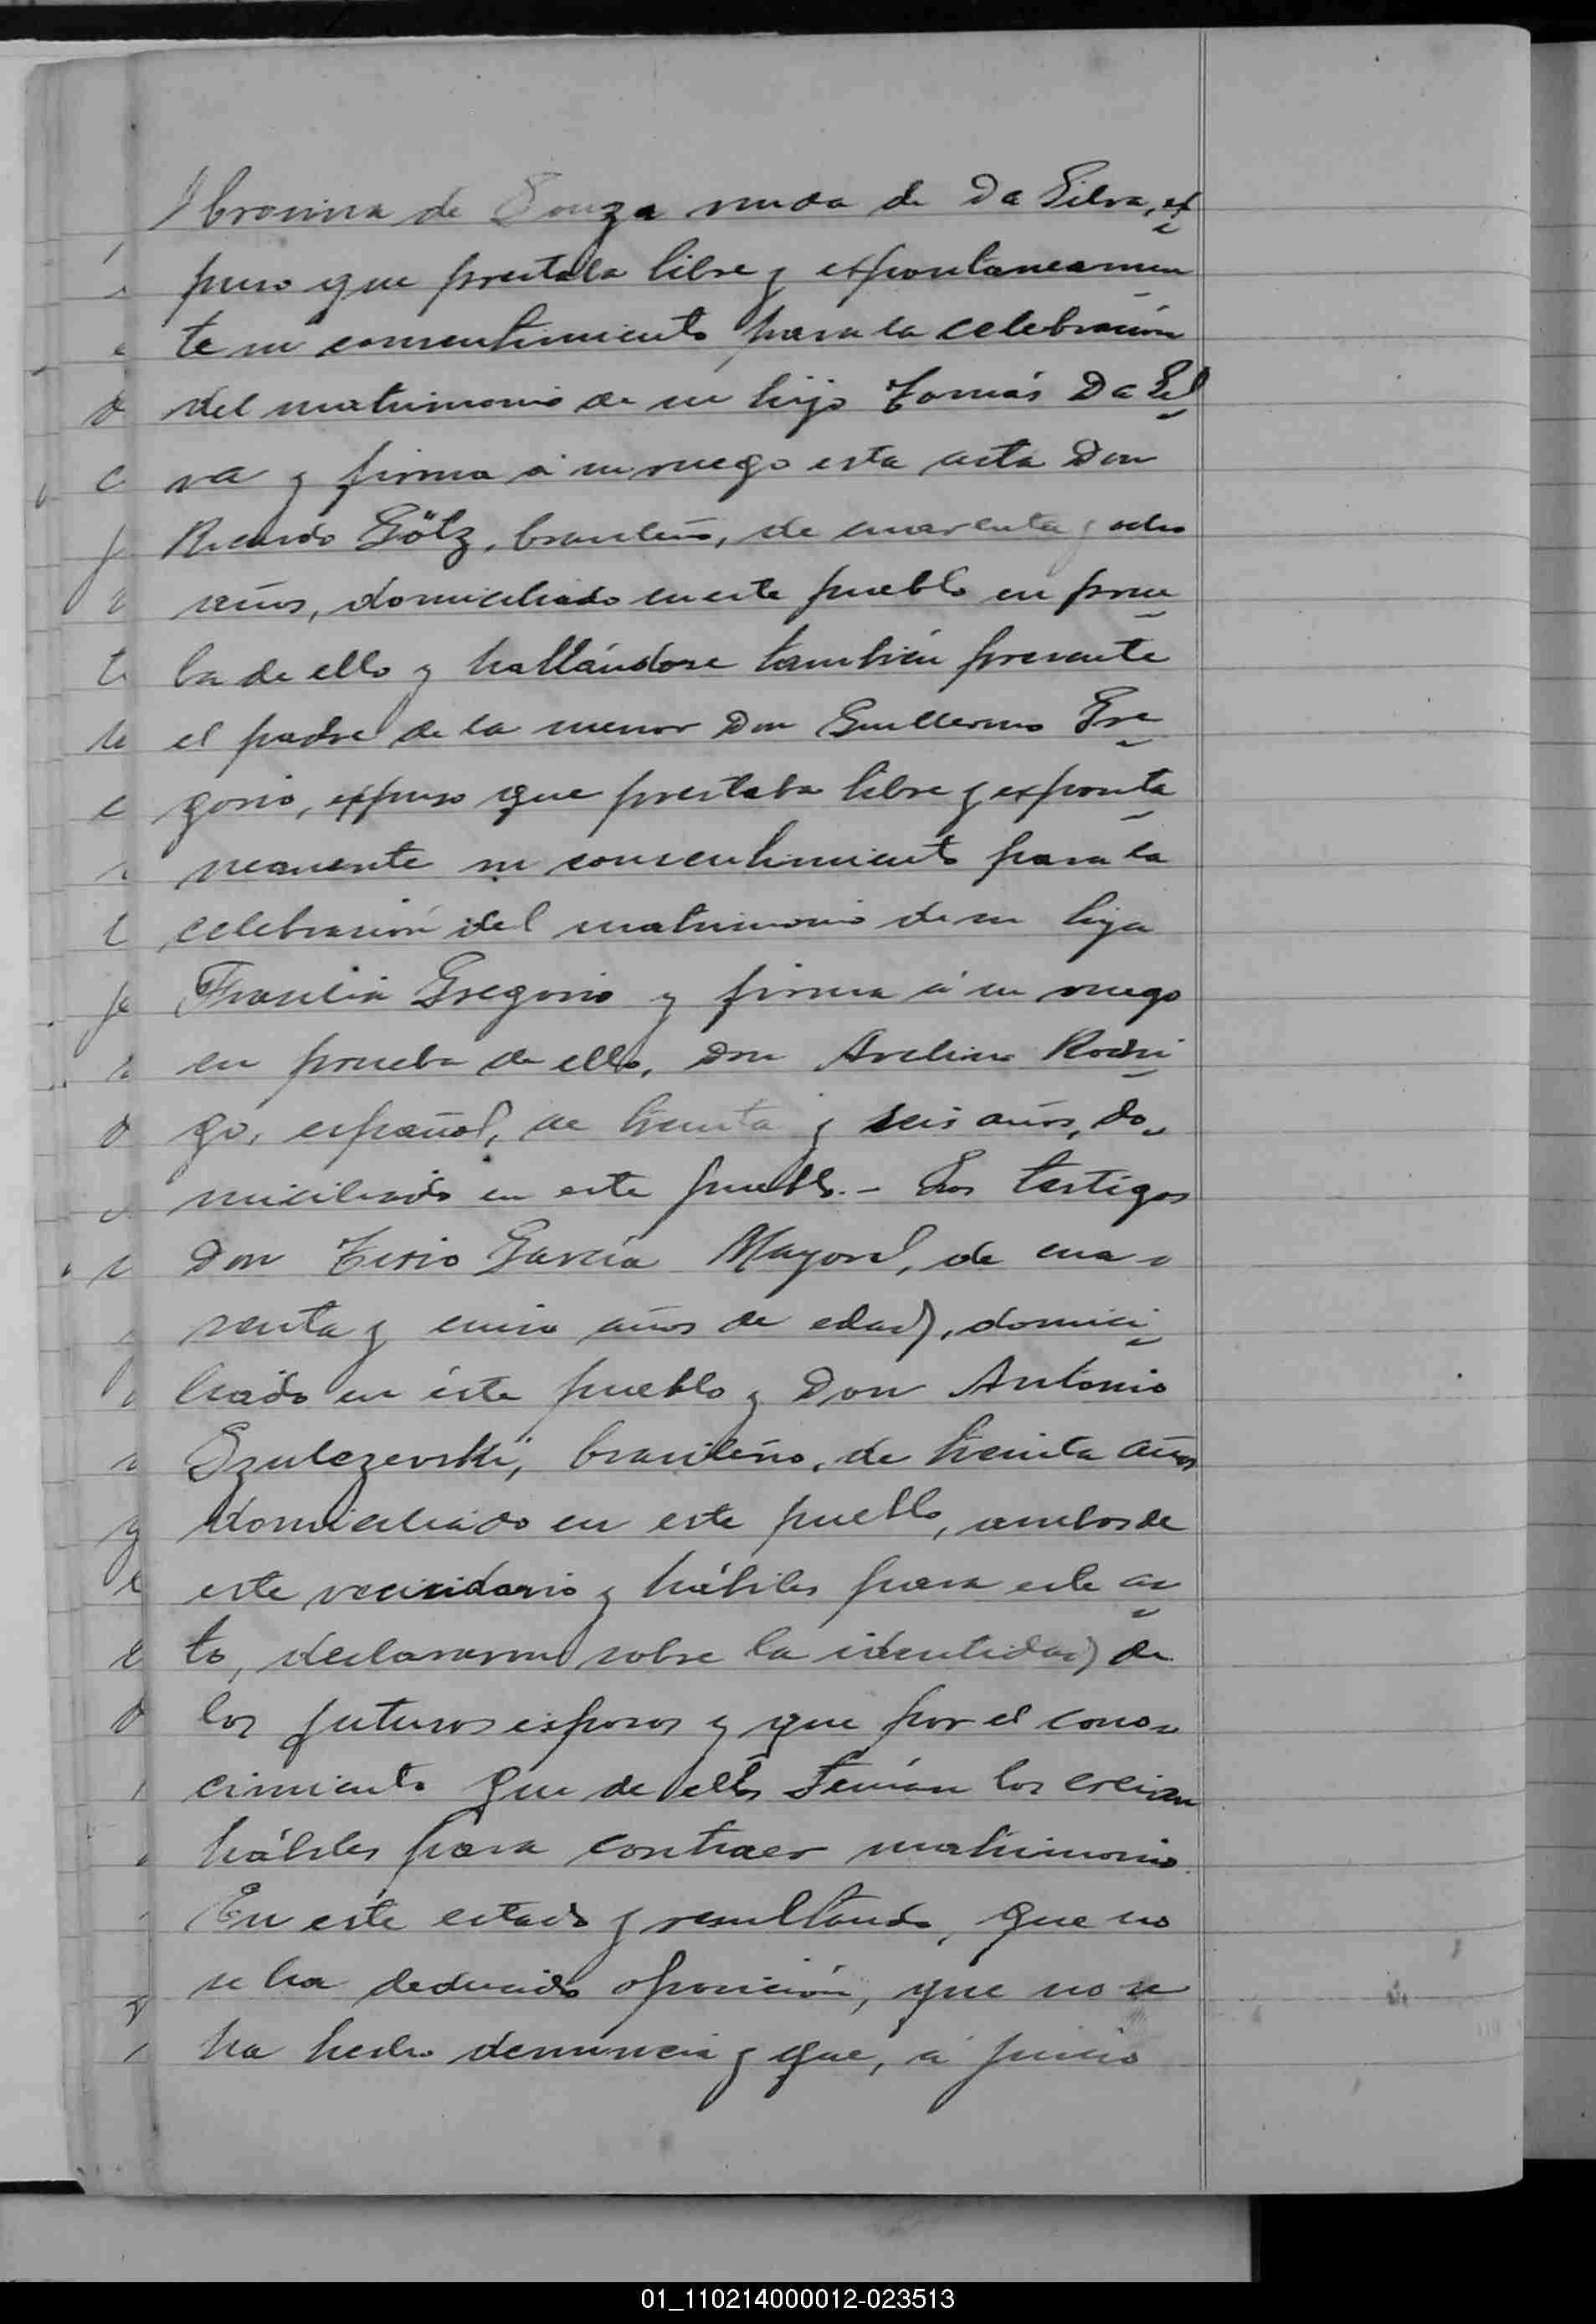 de Souza viuda de Da Silva, ex
puso que prestaba libre y expontaneamen
te su consentimiento para la celebración
del matrimonio de su hijo Tomás Da Sil
va y firma á su ruego esta acta Don
Ricardo Götz, brasileño, de cuarenta y ocho
años, domiciliado en este pueblo en prue
ba de ello y hallándose también presente
el padre de la menor Don Guillermo Gre
gorio, expuso que prestaba libre y exponta
neamente su consentimiento para la
celebración del matrimonio de su hija
Gregorio y firma á su ruego
en prueba de ello, Don Avelino Rodri
go, español, de treinta y seis años, do
miciliado en este pueblo.- Los testigos
Don García Mayoral, de cua
renta y cinco años de edad, domici
liado en éste pueblo y Don Antonio
Szulczevski, brasileño, de treinta años
domiciliado en este pueblo, ambos de
este vecindario y hábiles para este ac
to, declararon sobre la identidad de
los futuros esposos y que por el cono
cimiento que de ellos tenían los creían
hábiles para contraer matrimonio.
En este estado y resultando, que no
se ha deducido oposición, que no se
ha hecho denuncia y que, á juicio
01_110214000012-023513